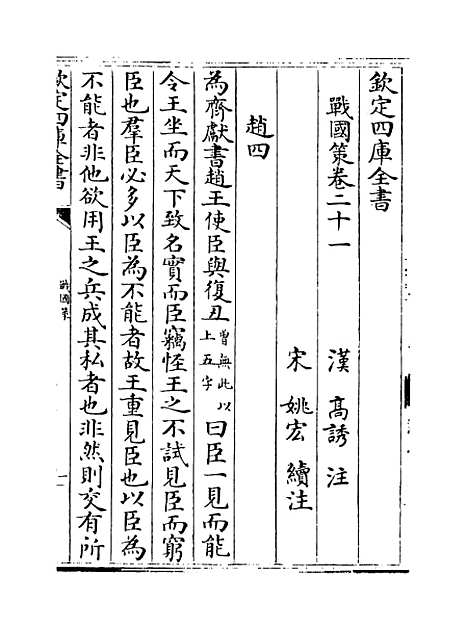 欽定四庫全書
戰國策卷二十一
漢 高誘 注
宋 姚宏 續注
趙四
為齊獻書趙王使臣與復丑曾無此以上五字曰臣一見而能
令王坐而天下致名實而臣竊怪王之不試見臣而窮
臣也羣臣必多以臣為不能者故王重見臣也以臣為
不能者非他欲用王之兵成其私者也非然則交有所
欽定四庫全書
戰國策
一